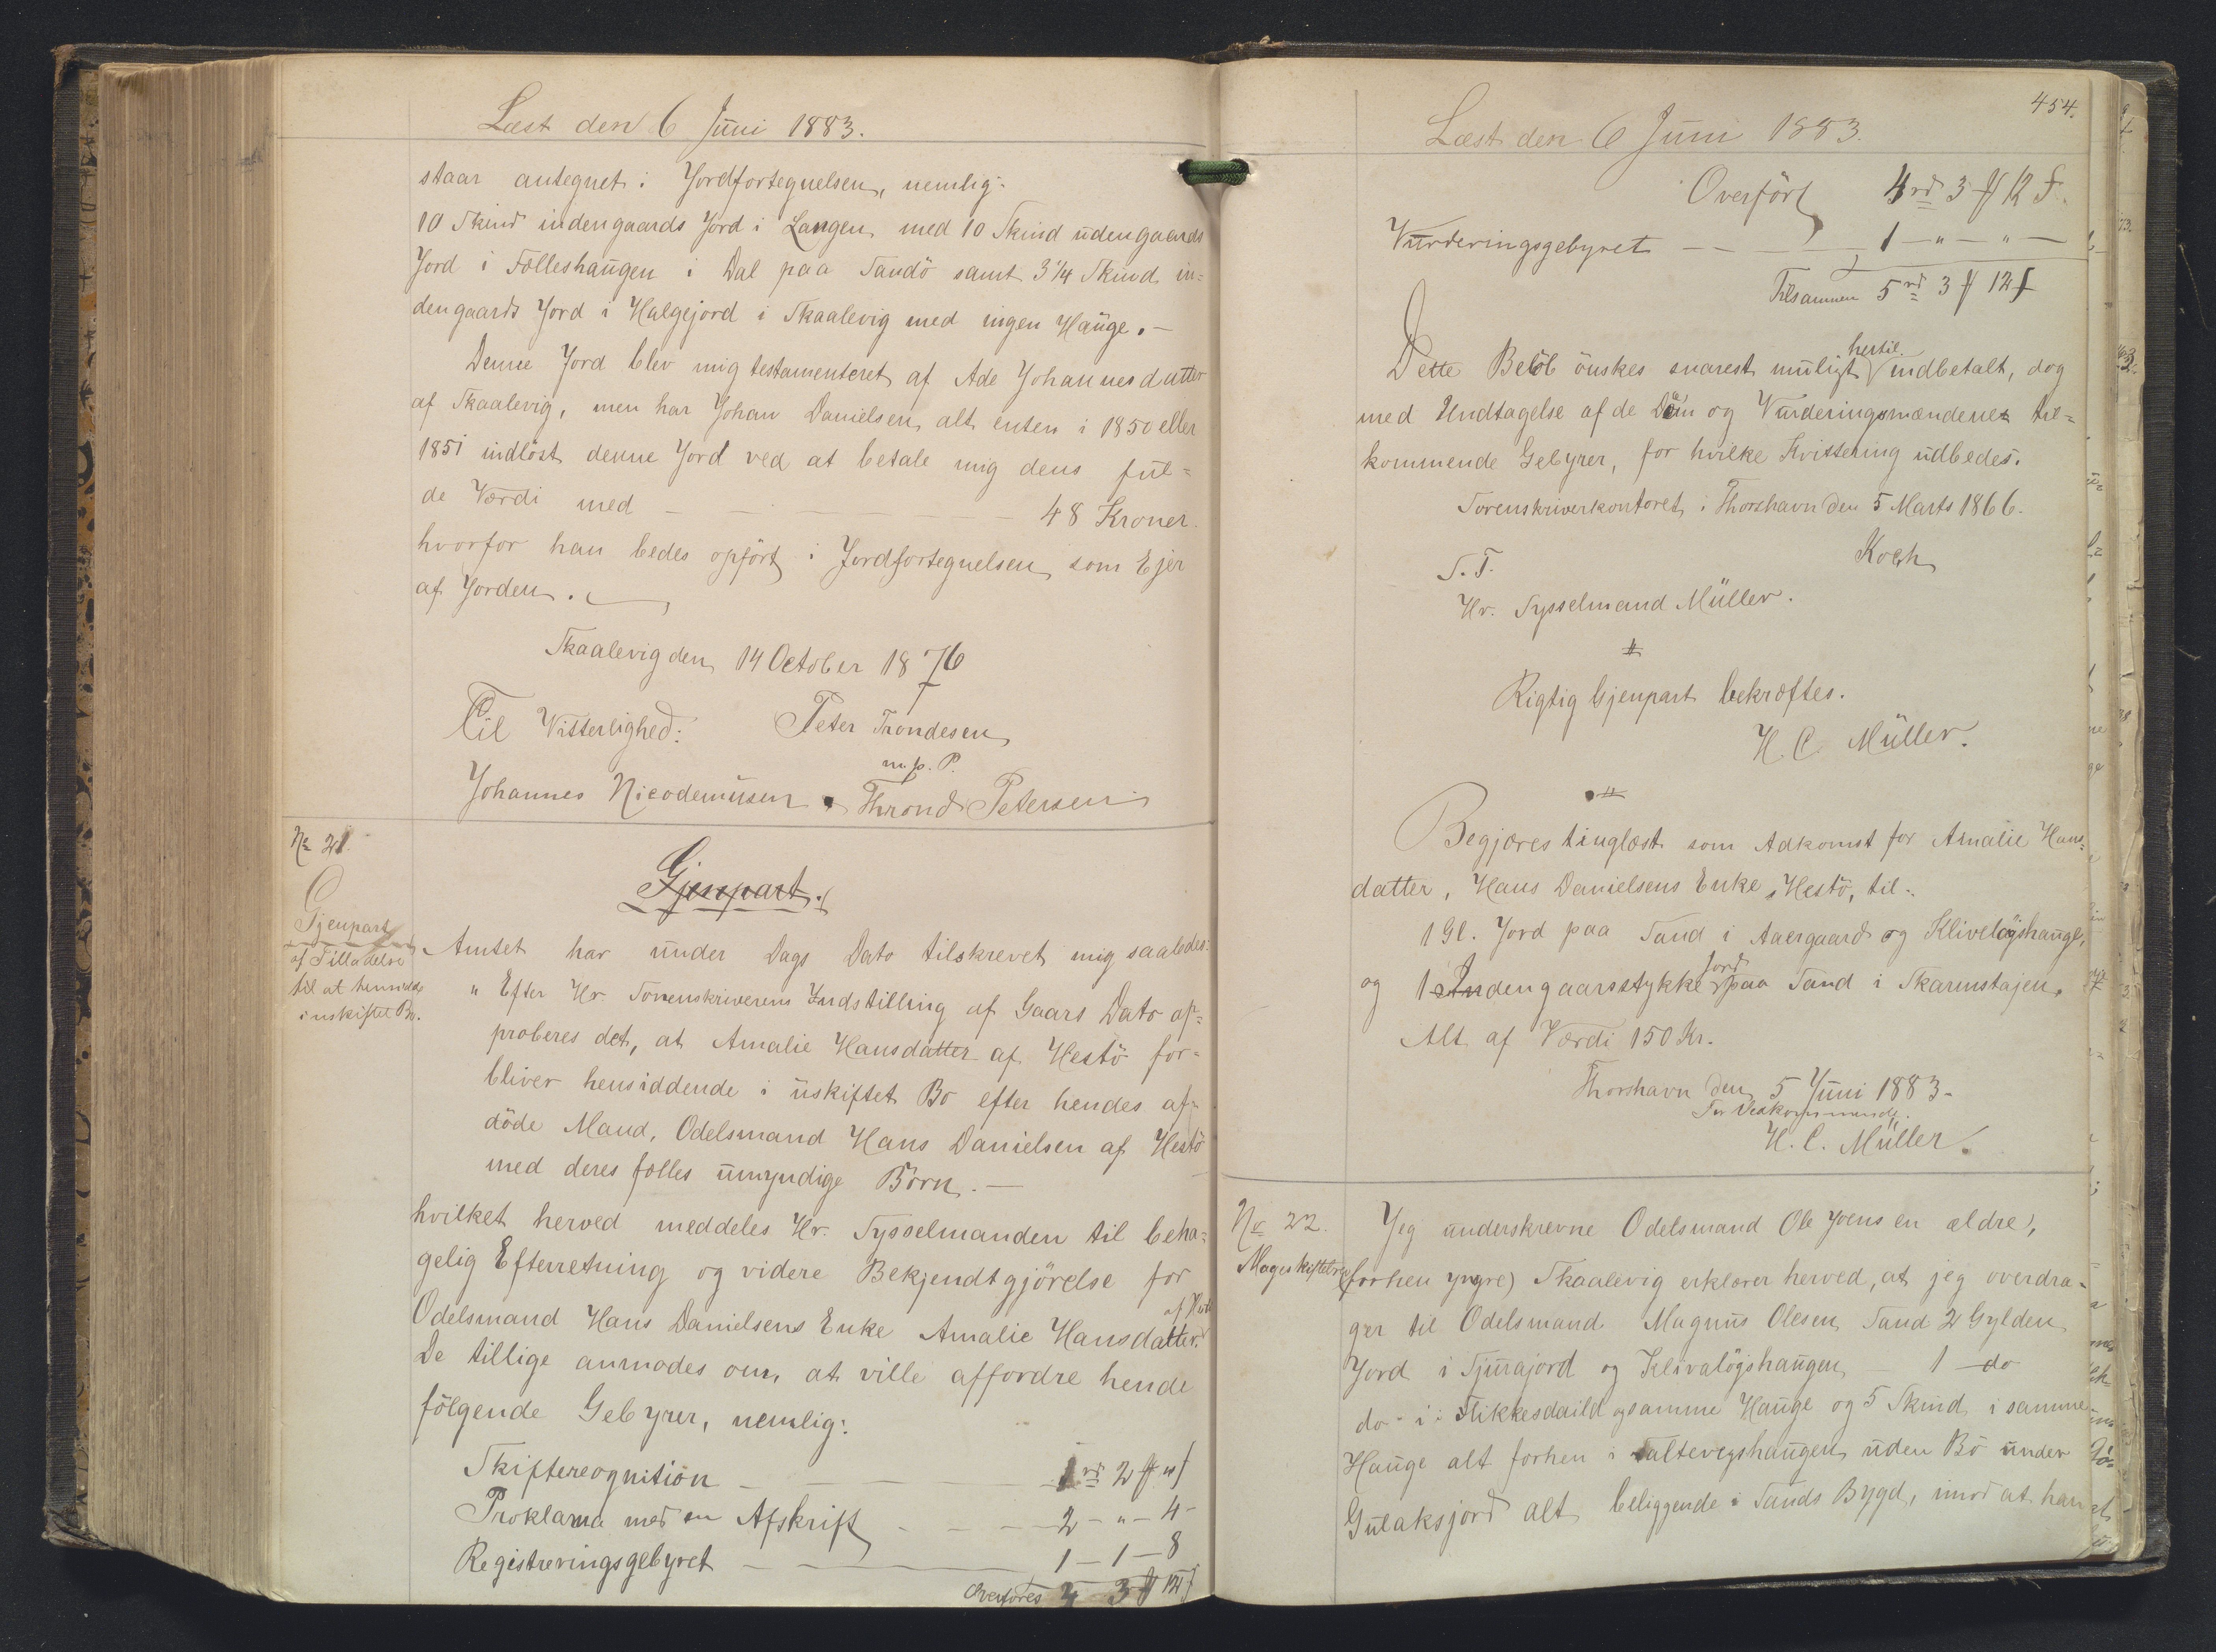 Læst den 6 Juni 1883.
staar antegnet i Jordfortegnelsen, nemlig:
10 Skind indengaards Jord i Langen med 10 Skind udengaards
Jord i Fælleshaugen i Dal paa Sandö samt 3 1/4 Skind in=
dengaards Jord i Halgejord i Skaalevig med ingen Hauge. —
Denne Jord blev mig testamenteret af Ade Johannesdatter
af Skaalevig, men har Johan Danielsen alt enten i 1850 eller
1851 indlöst denne Jord ved at betale mig dens ful=
de Værdi med — — — 48 Kroner.
hvorfor han bedes opfört i Jordfortegnelsen som Ejer
af Jorden.
Skaalevig den 14 October 1876
Til Vitterlighed: Peter Trondesen
m. p. P.
Johannes Nicodemusen Thrond Petersen
No 21.
Gjenpart
af Tilladelse
til at hensidde
i uskiftet Bo.
Gjenpart.
Amtet har under Dags Dato tilskrevet mig saaledes:
" Efter Hr. Sorenskriverens Indstilling af Gaars Dato ap=
proberes det, at Amalie Hansdatter af Hestö for=
bliver hensiddende i uskiftet Bo efter hendes af=
döde Mand, Odelsmand Hans Danielsen af Hestö
med deres fælles umyndige Börn. —
hvilket herved meddeles Hr. Sysselmanden til beha=
gelig Efterretning og videre Bekjendtgjörelse for
Odelsmand Hans Danielsens Enke Amalie Hansdatter
De tillige anmodes om, at ville affordre hende
fölgende Gebyrer, nemlig:
Skifterecognition — — 1 rd 2 " 
Proklama med en Afskrift — — 2 - " - 4 -
Registreringsgebyret — — 1 - 1 - 8
Overföres 4 3 12
454.
Læst den 6 Juni 1883.
Overfört 4 rd 3 12
Vurderingsgebyret — — 1 — " — " —
Tilsammen 5 rd 3 12
hertil
Dette Belöb önskes snarest muligt indbetalt, dog
med Undtagelse af de Dem og Vurderingsmændenes til=
kommende Gebyrer, for hvilke Kvittering udbedes.
Sorenskriverkontoret i Thorshavn den 5 Marts 1866.
Koch
S. T.
Hr. Sysselmand Müller.
Rigtig Gjenpart bekræftes.
H. C. Müller.
Begjæres tinglæst som Adkomst for Amalie Hans=
datter, Hans Danielsens Enke, Hestö, til:
1 Gl. Jord paa Sand i Aaergaard og Kliveløgshauge,
Jord
og 1 Indengaarsstykke paa Sand i Skarmstajen.
Alt af Værdi 150 Kr.
Thorshavn den 5 Juni 1883.
For Vedkommende.
H. C. Müller.
No 22.
Mageskiftebrev
Jeg underskrevne Odelsmand Ole Joensen ældre,
(forhen yngre) Skaalevig erklærer herved, at jeg overdra=
ger til Odelsmand Magnus Olesen Sand 2 Gylden
Jord i Tjurajord og Klivalögshaugen — 1 do
do i Flikkesdaild og samme Hauge og 5 Skind i samme
Hauge alt forhen i Saltevegshaugen uden Bö under
Gulaksjord alt beliggende i Sands Bygd, imod at han